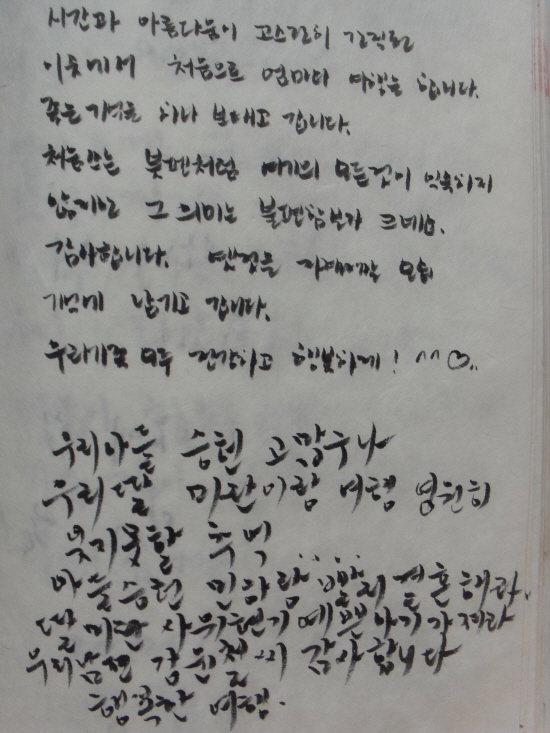 시간과 아름다움이 고스란히 간직된
이곳에서 처음으로 엄마와 여행을 합니다.
좋은 기억을 하나 보태고 갑니다.
처음 쓰는 붓펜처럼 여기의 모든것이 익숙하지
않지만 그 의미는 불편함보다 크네요.
감사합니다. 옛것을 모습
기억에 남기고 갑니다.
우리가족 모두 건강하고 행복하게! ^^♡..
우리아들 승현 고맙구나
우리딸 미란이랑 여행 영원히
못지못할 추억
아들승현 민아랑 빨리 결혼해라.
딸 미란 사위현기 예쁜아기가져라
우리남편 강원철씨 감사합니다
행복한 여행.